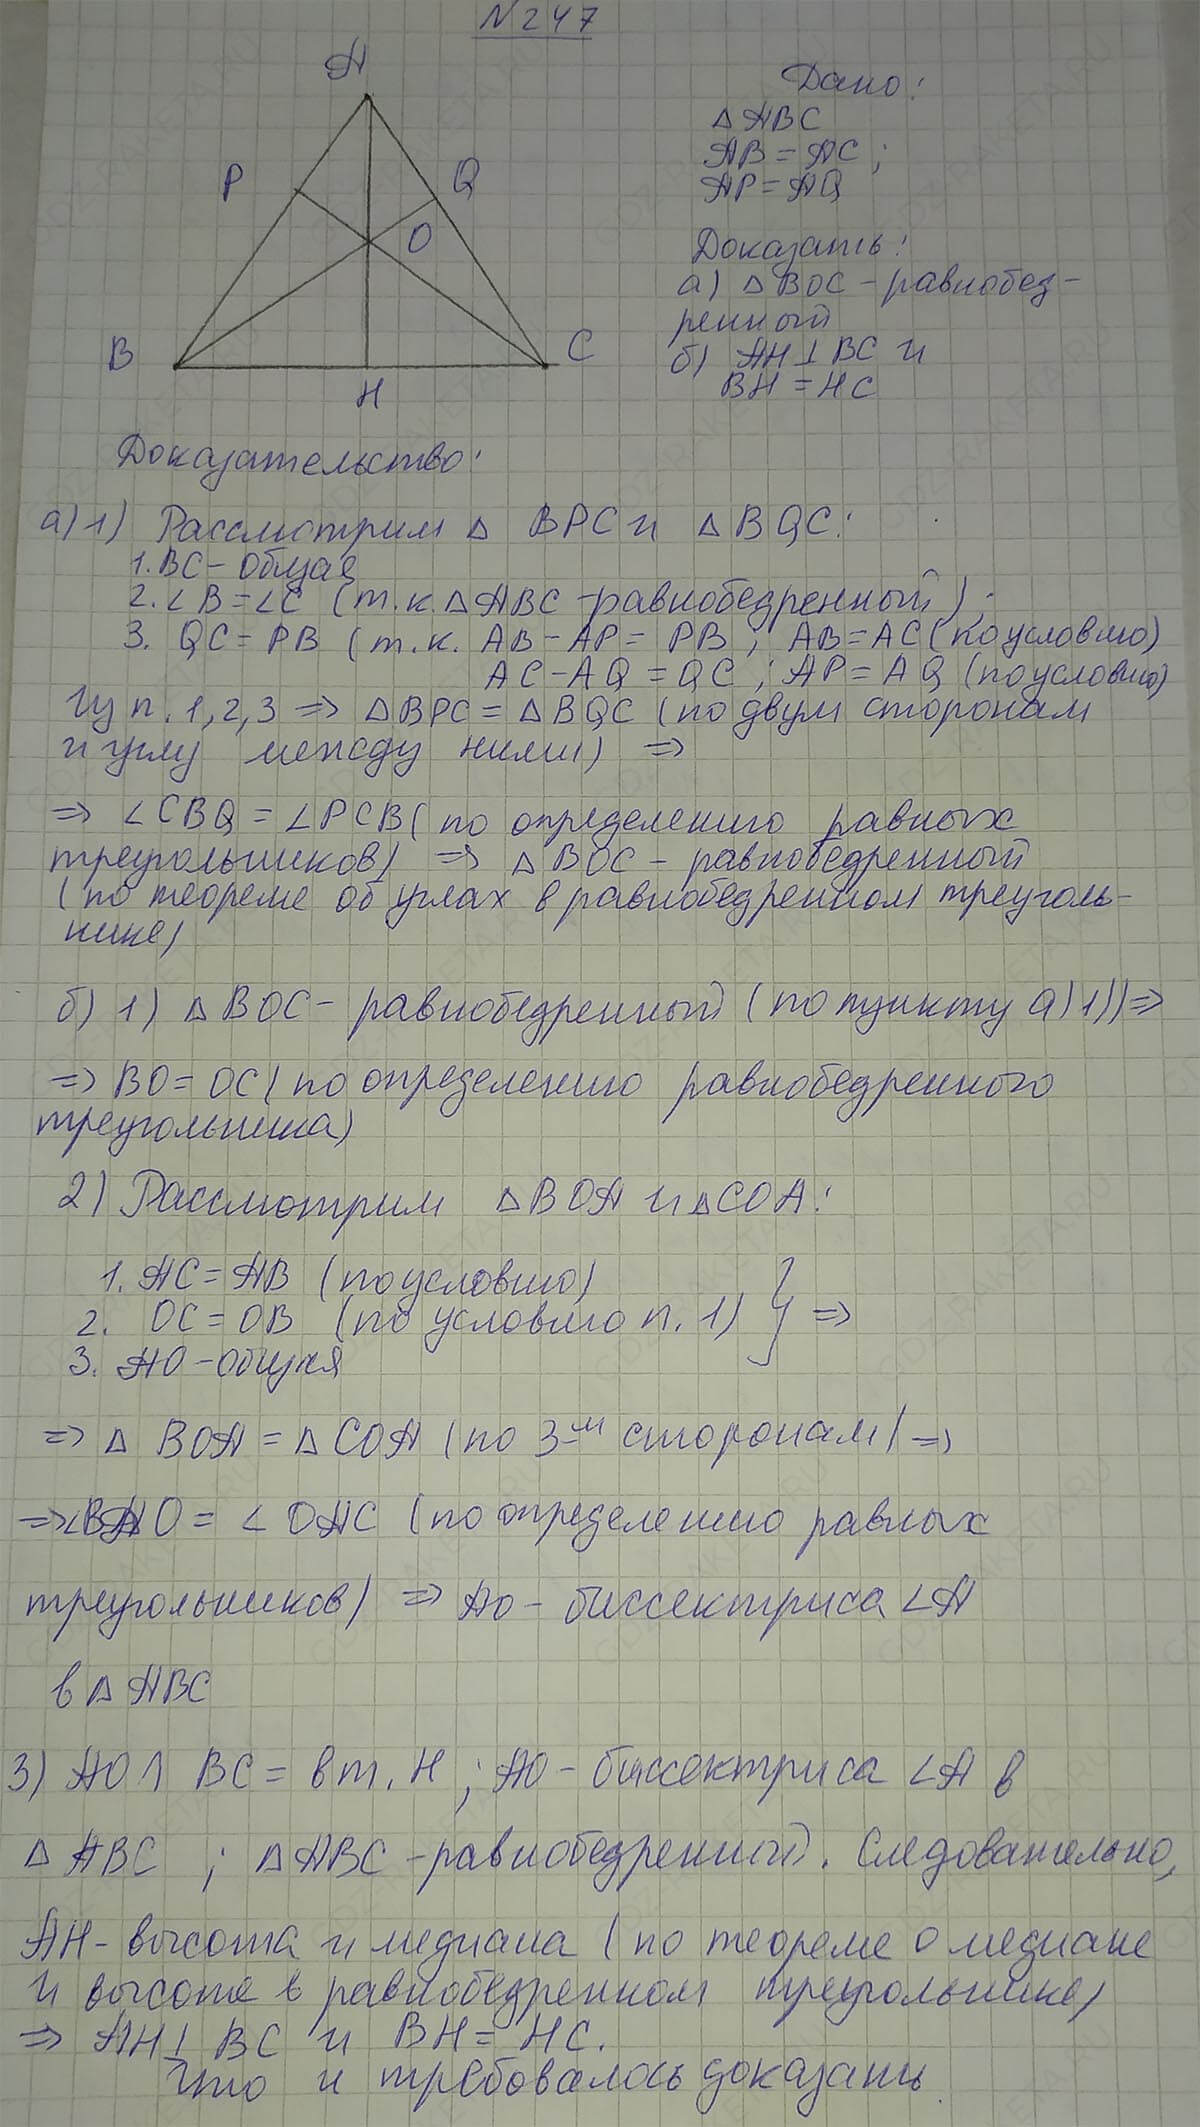 N 247
A
P
Q
O
B
C
H
Дано:
△ ABC
AB = AC;
AP = AQ
Доказать:
а) △ BOC - равнобед-
ренный
б) AH ⊥ BC и
BH = HC
Доказательство:
а) 1) Рассмотрим △ BPC и △ BQC:
1. BC - общая
2. ∠B = ∠C (т.к. △ ABC - равнобедренный);
3. QC = PB (т.к. AB - AP = PB; AB = AC (по условию)
AC - AQ = QC; AP = AQ (по условию)
Из п. 1, 2, 3 => △ BPC = △ BQC (по двум сторонам
и углу между ними) =>
=> ∠CBQ = ∠PCB (по определению равных
треугольников) => △ BOC - равнобедренный
(по теореме об углах в равнобедренном треуголь-
нике)
б) 1) △ BOC - равнобедренный (по пункту а) 1)) =>
=> BO = OC (по определению равнобедренного
треугольника)
2) Рассмотрим △ BOA и △ COA:
1. AC = AB (по условию)
2. OC = OB (по условию п. 1) } =>
3. AO - общая
=> △ BOA = △ COA (по 3-м сторонам) =>
=> ∠BAO = ∠OAC (по определению равных
треугольников) => AO - биссектриса ∠A
в △ ABC
3) AO ∩ BC = в т. H; AO - биссектриса ∠A в
△ ABC ; △ ABC - равнобедренный. Следовательно,
AH - высота и медиана (по теореме о медиане
и высоте в равнобедренном треугольнике)
=> AH ⊥ BC и BH = HC.
Что и требовалось доказать.